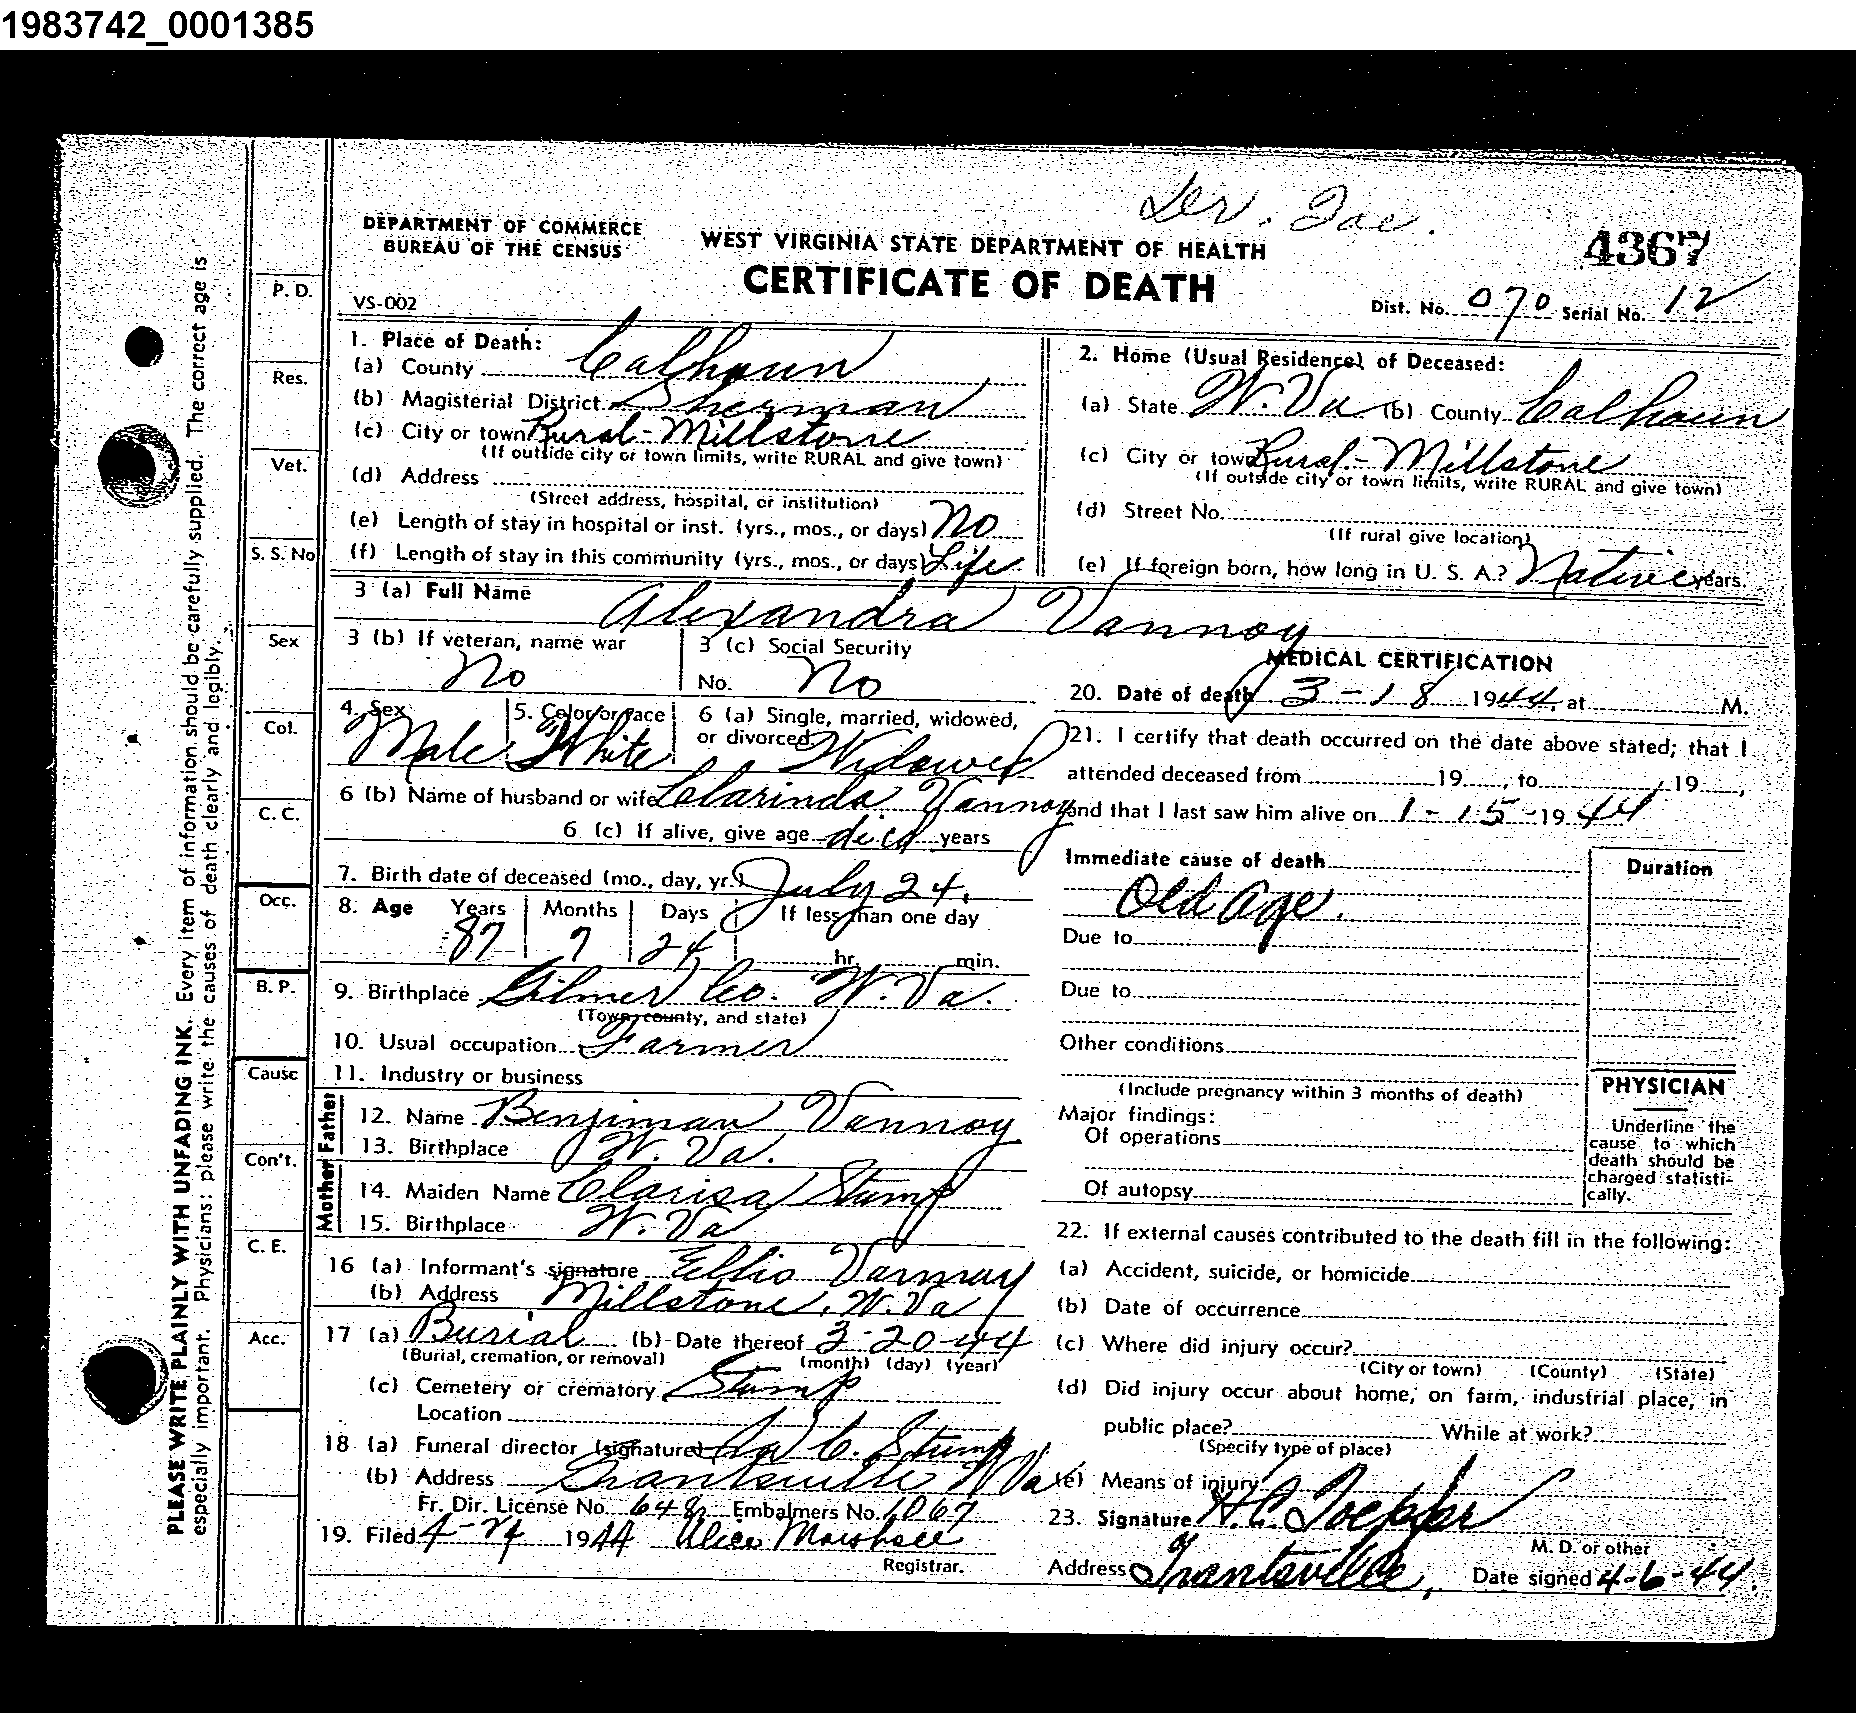 1983742_0001385
DEPARTMENT OF COMMERCE
BUREAU OF THE CENSUS
WEST VIRGINIA STATE DEPARTMENT OF HEALTH
CERTIFICATE OF DEATH
4367
VS-002
Dist. No. 070 Serial No. 12
PLEASE WRITE PLAINLY WITH UNFADING INK. Every item of information should be carefully supplied. The correct age is
especially important. Physicians: please write the causes of death clearly and legibly.
P. D.
Res.
Vet.
S. S. No
Sex
Col.
C. C.
Occ.
B. P.
Cause
Con't.
C. E.
Acc.
1. Place of Death:
(a) County Calhoun
(b) Magisterial District Sherman
(c) City or town Rural-Millstone
(If outside city or town limits, write RURAL and give town)
(d) Address
(Street address, hospital, or institution)
(e) Length of stay in hospital or inst. (yrs., mos., or days) No
(f) Length of stay in this community (yrs., mos., or days) Life
2. Home (Usual Residence) of Deceased:
(a) State W. Va (b) County Calhoun
(c) City or town Rural-Millstone
(If outside city or town limits, write RURAL and give town)
(d) Street No.
(If rural give location)
(e) If foreign born, how long in U. S. A.? Native years.
3 (a) Full Name Alexandra Vannoy
3 (b) If veteran, name war No
3 (c) Social Security
No. No
4. Sex Male
5. Color or race White
6 (a) Single, married, widowed,
or divorced Widowed
6 (b) Name of husband or wife Clarinda Vannoy
6 (c) If alive, give age decd years
7. Birth date of deceased (mo., day, yr.) July 24.
8. Age Years Months Days If less than one day
87 7 24 hr. min.
9. Birthplace Gilmer Co. W. Va.
(Town, county, and state)
10. Usual occupation Farmer
11. Industry or business
Father
12. Name Benjiman Vannoy
13. Birthplace W. Va.
Mother
14. Maiden Name Clarisa Stump
15. Birthplace W. Va
16 (a) Informant's signature Ellis Vannoy
(b) Address Millstone, W. Va
17 (a) Burial (b) Date thereof 3-20-44
(Burial, cremation, or removal) (month) (day) (year)
(c) Cemetery or crematory Stump
Location
18 (a) Funeral director (signature) C. Stump
(b) Address Grantsville W Va
Fr. Dir. License No. 648 Embalmers No. 1067
19. Filed 4-24 1944 Alice
Registrar.
MEDICAL CERTIFICATION
20. Date of death 3-18 1944, at M.
21. I certify that death occurred on the date above stated; that I
attended deceased from 19 , to , 19 ,
and that I last saw him alive on 1-15-1944
Immediate cause of death Duration
Old age.
Due to
Due to
Other conditions
(Include pregnancy within 3 months of death)
Major findings:
Of operations
Of autopsy
PHYSICIAN
Underline the
cause to which
death should be
charged statisti-
cally.
22. If external causes contributed to the death fill in the following:
(a) Accident, suicide, or homicide
(b) Date of occurrence
(c) Where did injury occur?
(City or town) (County) (State)
(d) Did injury occur about home, on farm, industrial place, in
public place? While at work?
(Specify type of place)
(e) Means of injury
23. Signature H. C.
M. D. or other
Address Grantsville, Date signed 4-6-44.